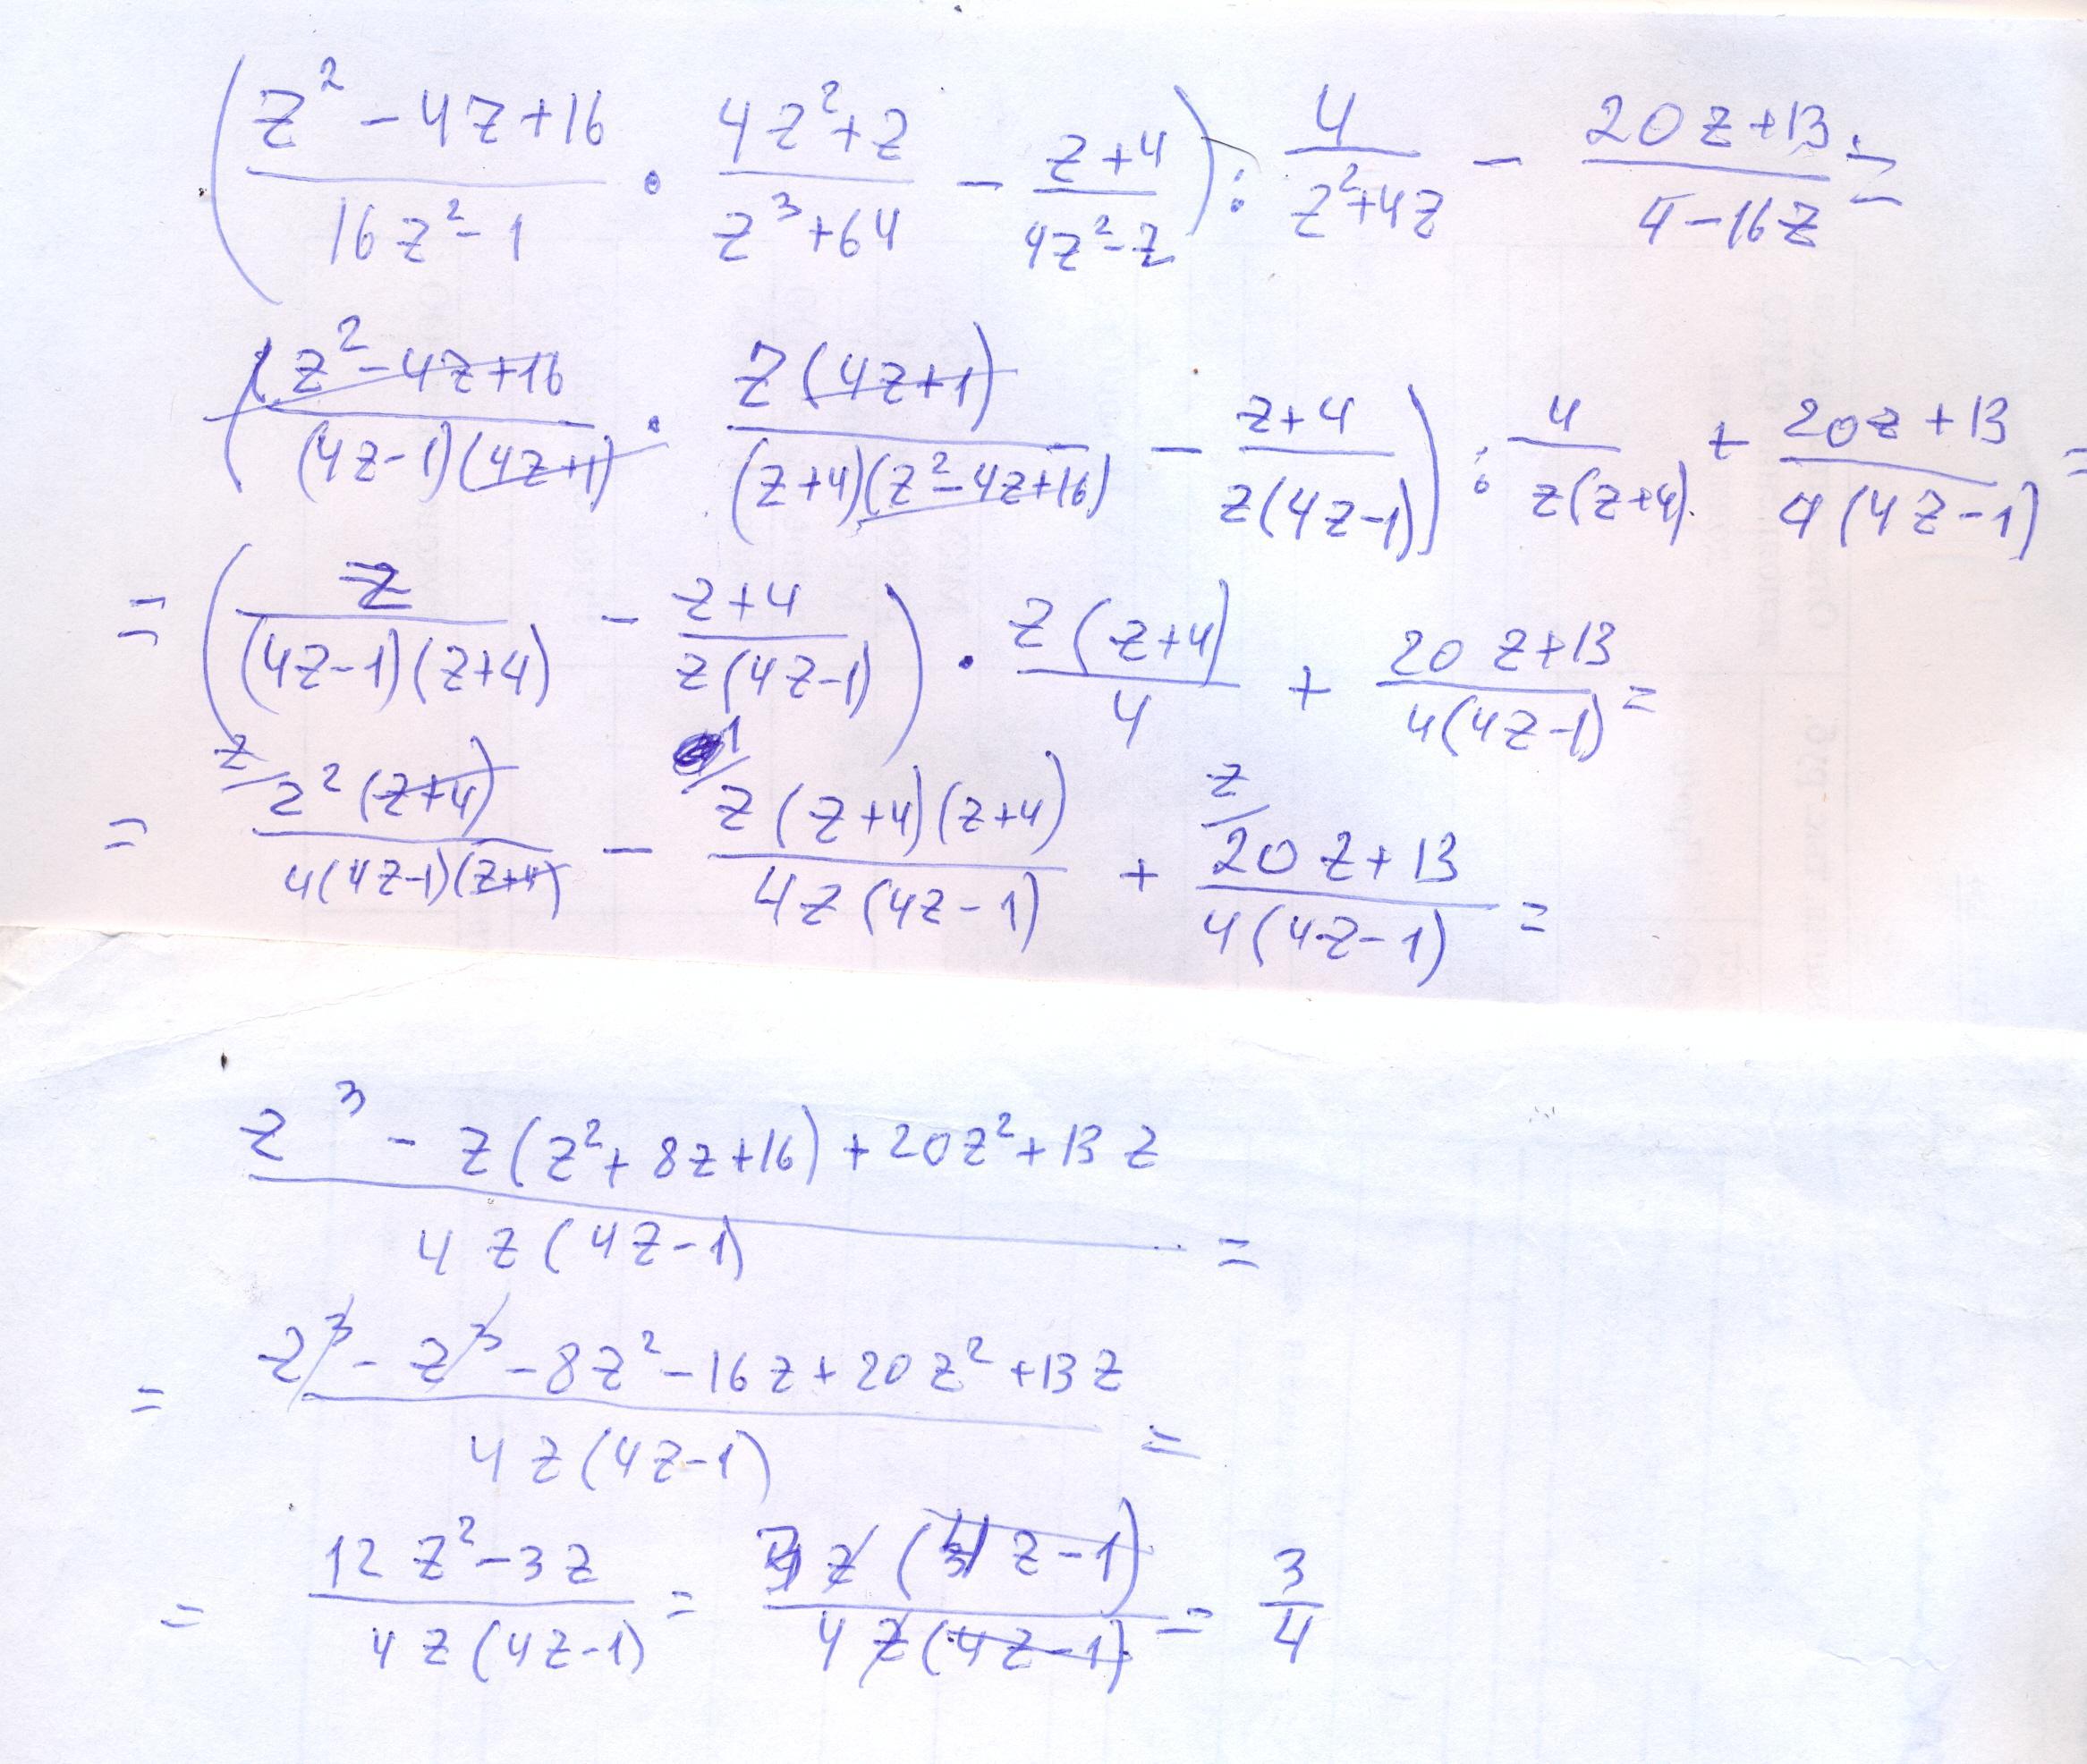 (z² - 4z + 16)/(16z² - 1) · (4z² + z)/(z³ + 64) - (z + 4)/(4z² - z)) : 4/(z² + 4z) - (20z + 13)/(4 - 16z) =
((z² - 4z + 16)/((4z - 1)(4z + 1)) · z(4z + 1)/((z + 4)(z² - 4z + 16)) - (z + 4)/(z(4z - 1))) : 4/(z(z + 4)) + (20z + 13)/(4(4z - 1)) =
= (z/((4z - 1)(z + 4)) - (z + 4)/(z(4z - 1))) · z(z + 4)/4 + (20z + 13)/(4(4z - 1)) =
= z/ z²(z + 4)/(4(4z - 1)(z + 4)) - 1/ z(z + 4)(z + 4)/(4z(4z - 1)) + z/ (20z + 13)/(4(4z - 1)) =
(z³ - z(z² + 8z + 16) + 20z² + 13z)/(4z(4z - 1)) =
= (z³ - z³ - 8z² - 16z + 20z² + 13z)/(4z(4z - 1)) =
= (12z² - 3z)/(4z(4z - 1)) = 3z(4z - 1)/(4z(4z - 1)) = 3/4